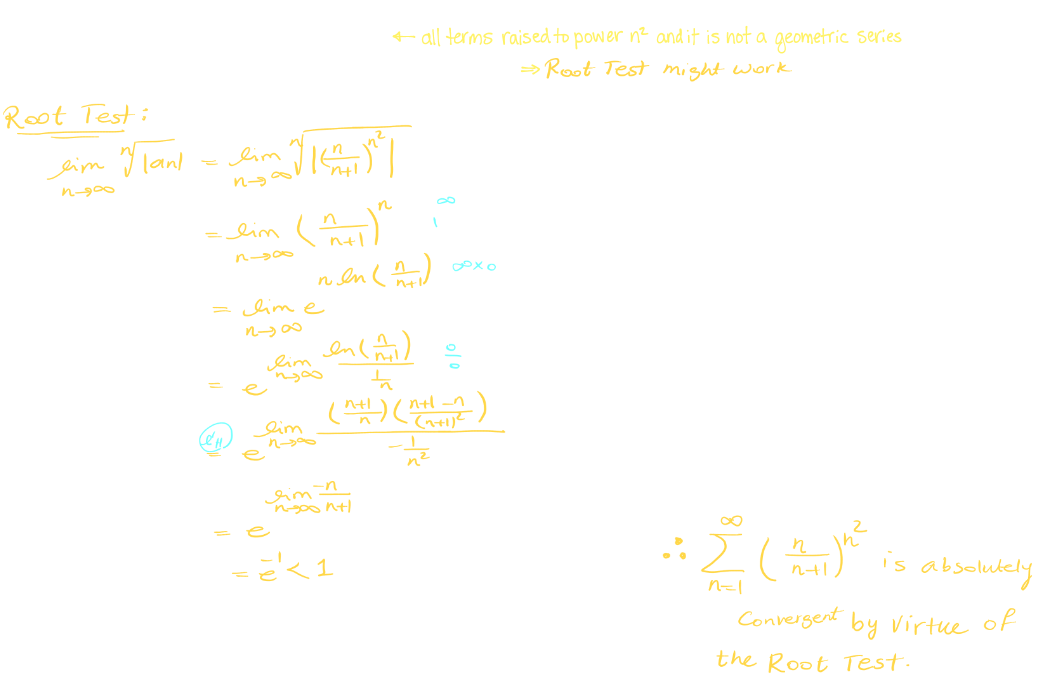 ← all terms raised to power n² and it is not a geometric series
⇒ Root Test might work
Root Test:
lim n→∞ ⁿ√|an| = lim n→∞ ⁿ√|(n/(n+1))^n²|
= lim n→∞ (n/(n+1))^n 1^∞
= lim n→∞ e^(n ln(n/(n+1))) ∞×0
= e^(lim n→∞ ln(n/(n+1)) / (1/n)) 0/0
ℓ'H = e^(lim n→∞ ((n+1)/n)((n+1-n)/(n+1)²) / (-1/n²))
= e^(lim n→∞ -n/(n+1))
= e^-1 < 1
∴ ∑ n=1 ∞ (n/(n+1))^n² is absolutely
Convergent by virtue of
the Root Test.